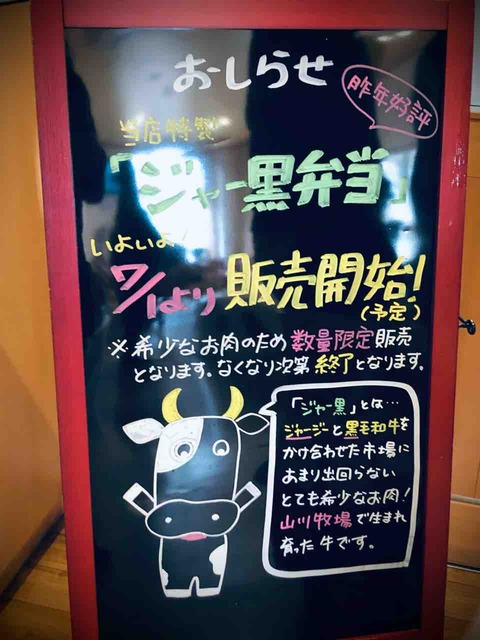 おしらせ
昨年好評
当店特製
「ジャー黒弁当」
いよいよ!
7/1より販売開始!
(予定)
※希少なお肉のため数量限定販売
となります。なくなり次第終了となります。
「ジャー黒」とは…
ジャージーと黒毛和牛を
かけ合わせた市場に
あまり出回らない
とても希少なお肉!
山川牧場で生まれ
育った牛です。